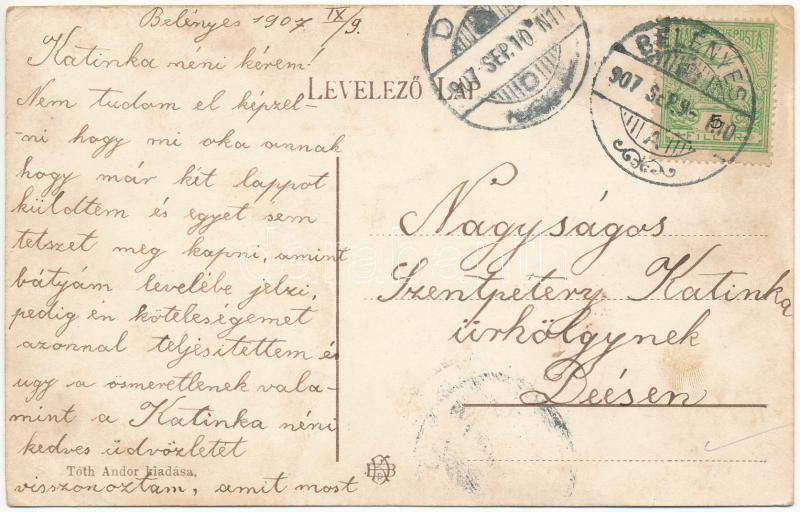 Belényes 1907 IX/9.
Katinka néni kérem!
Nem tudom el képzel-
ni hogy mi oka annak
hogy már két lappot
küldtem és egyet sem
tetszet meg kapni, amint
bátyám levelébe jelzi,
pedig én köteleségemet
azonnal teljésitettem és
ugy a ösmeretlenek vala-
mint a Katinka néni
kedves üdvözletét
visszonoztam, amit most
Tóth Andor kiadása.
LEVELEZŐ LAP
907 SEP. 10 N11
BÉLÉNYES
907 SEP. 9
A
5
Nagyságos
Szentpétery Katinka
úrhölgynek
Deésen
darabanth